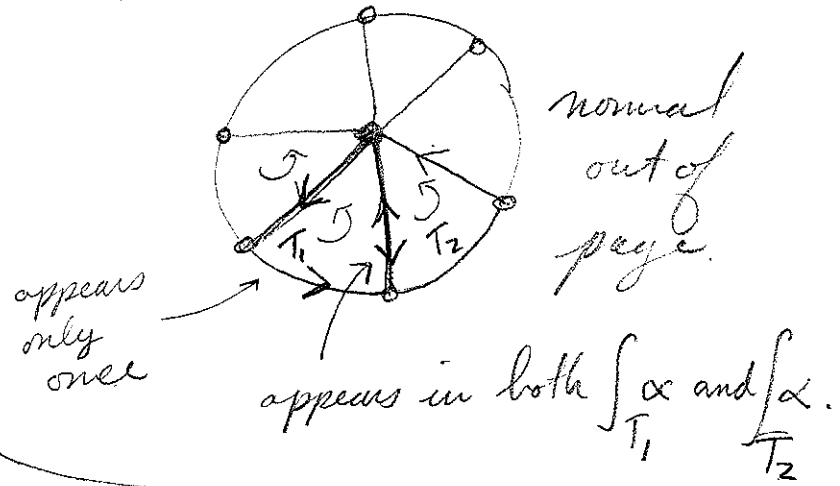 normal
out of
page.
T₁
T₂
appears
only
once
appears in both ∫_{T₁} α and ∫_{T₂} α.